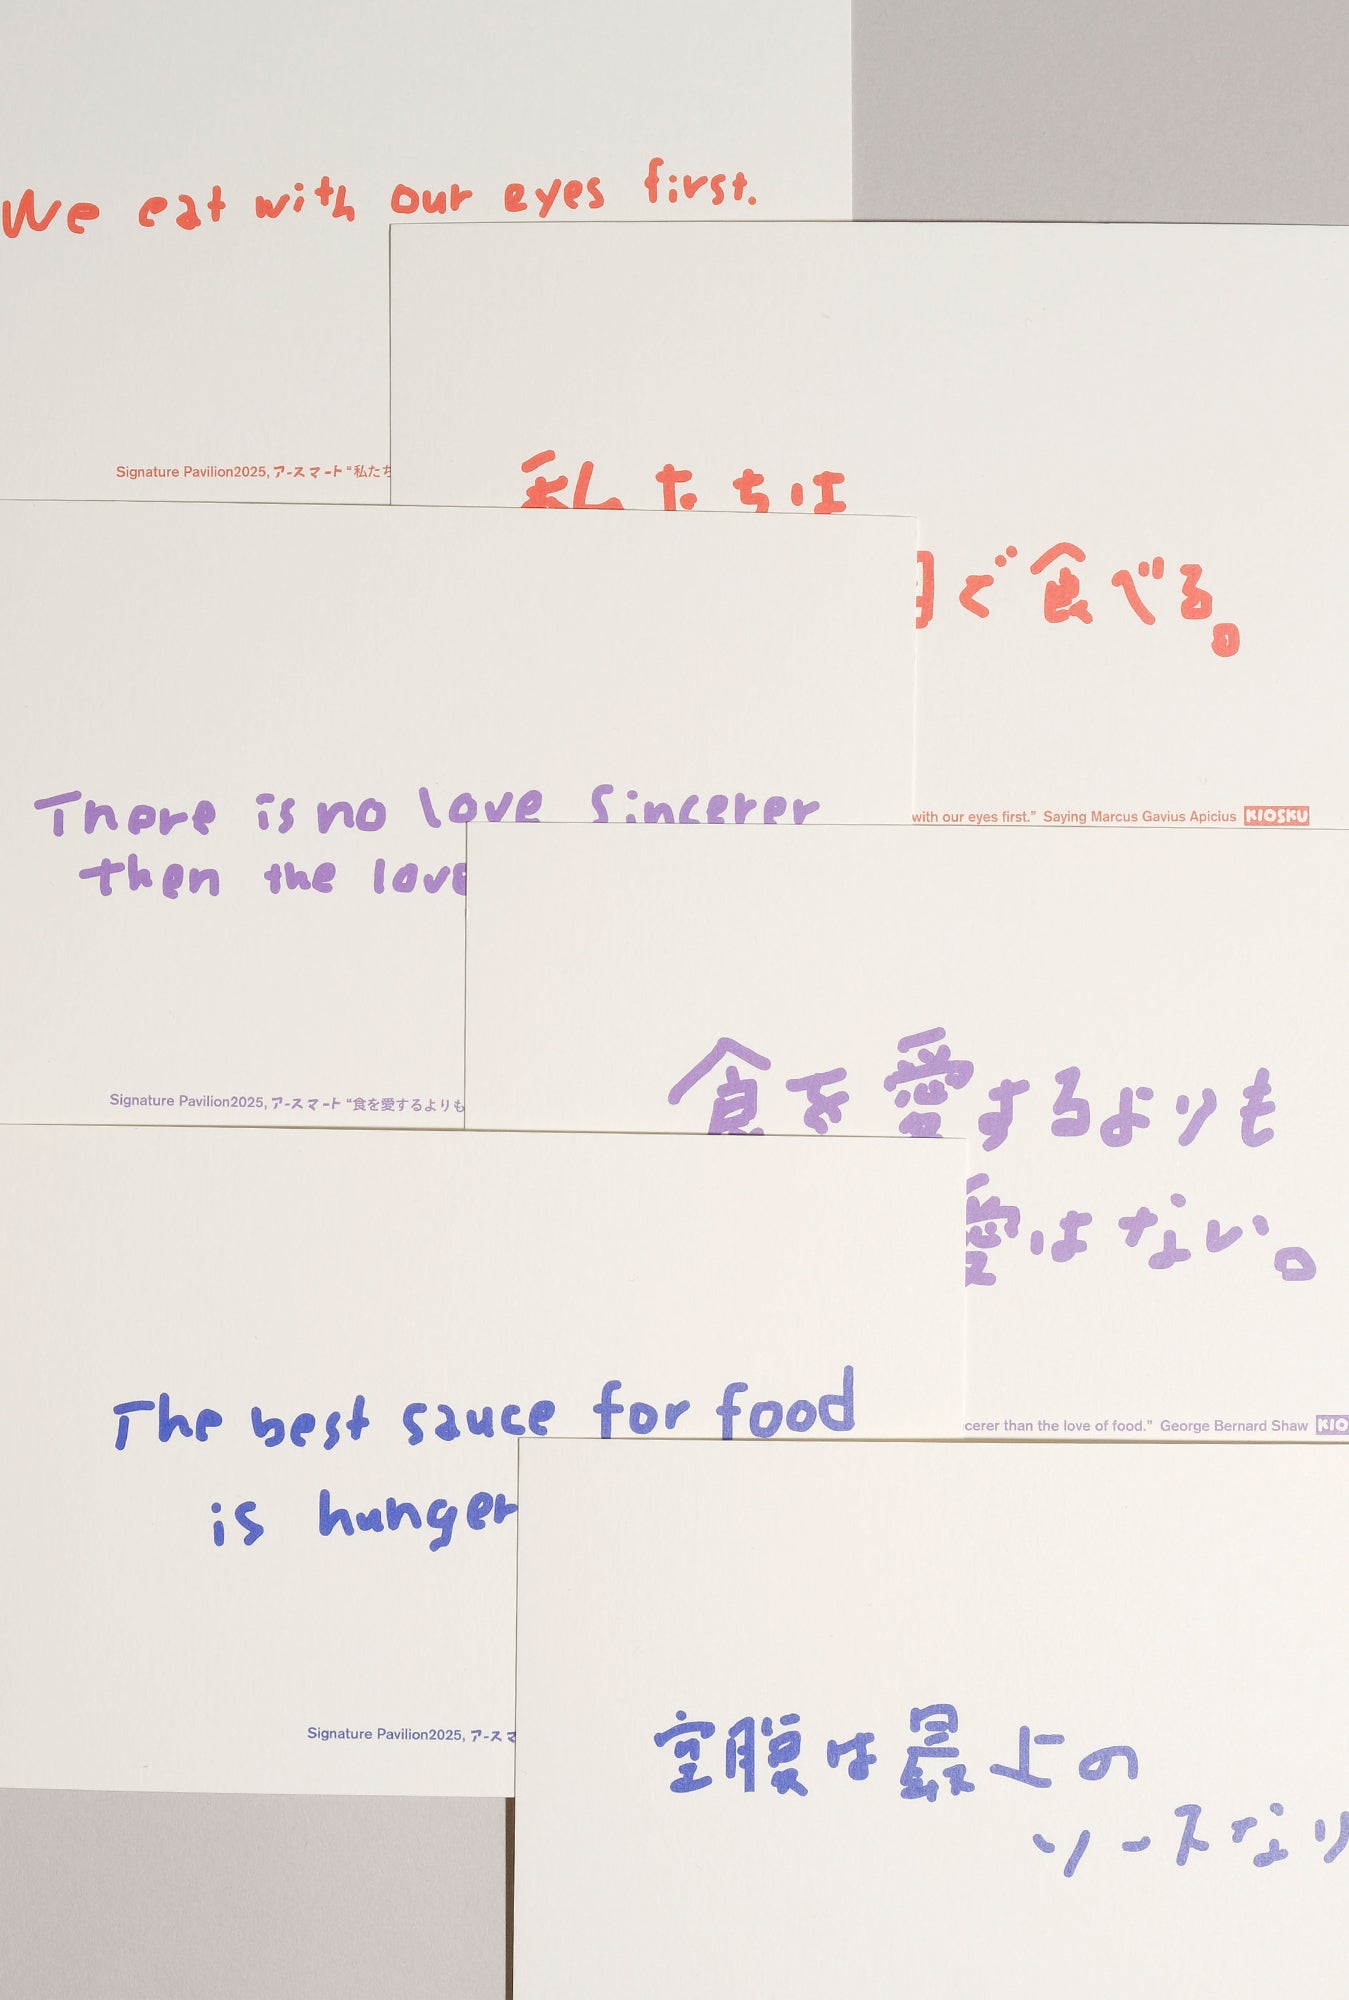 We eat with our eyes first.
Signature Pavilion2025, アースマート “私たち
私たちは
目で食べる。
with our eyes first.” Saying Marcus Gavius Apicius KIOSKU
There is no love Sincerer
then the love
Signature Pavilion2025, アースマート “食を愛するよりも
食を愛するよりも
愛はない。
cerer than the love of food.” George Bernard Shaw KIO
The best sauce for food
is hunger
Signature Pavilion2025, アースマ
空腹は最上の
ソースなり